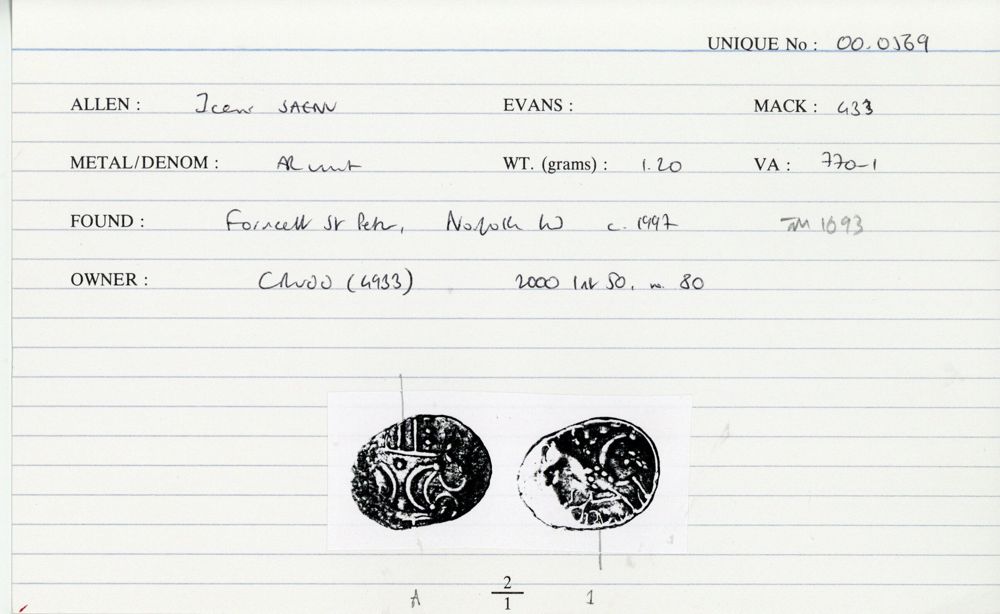 UNIQUE No : 00.0569
ALLEN : Iceni SAENV EVANS : MACK : 433
METAL/DENOM : AR unit WT. (grams) : 1.20 VA : 770-1
FOUND : Forncett St Peter, Norfolk c. 1997 TM 1693
OWNER : (4933) 2000 List 50, no. 80
A 2/1 1